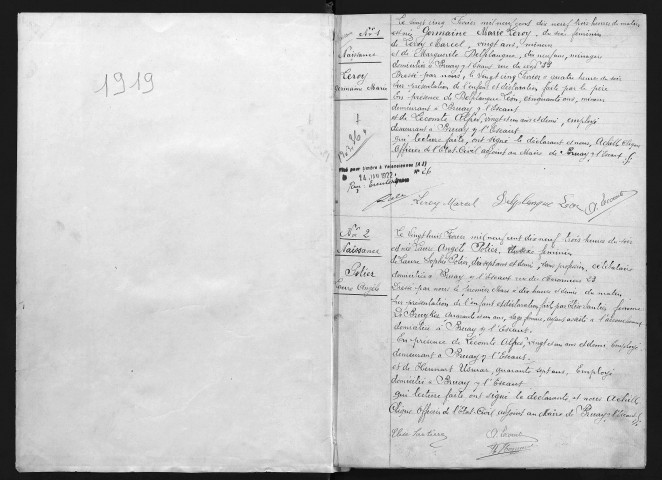 1919
N° 1
Naissance
Leroy
Germaine Marie
Le vingt cinq Février mil neuf cent dix neuf trois heures du matin
est née Germaine Marie Leroy, du sexe féminin
de Leroy Marcel, vingt ans, mineur
et de Marguerite Delplanque, dix neuf ans, ménagère
domiciliés à Bruay s/ l'Escaut rue
Dressé par nous, le vingt cinq Février à quatre heures du soir
sur présentation de l'enfant et déclaration faite par le père
En présence de Delplanque Léon, cinquante ans, mineur
demeurant à Bruay s/ l'Escaut
et de Lecomte Alfred, vingt et un ans et demi, employé
demeurant à Bruay s/ l'Escaut
qui lecture faite, ont signé le déclarant et nous, Achille
Officier de l'Etat-Civil adjoint au Maire de Bruay s/ l'Escaut
Visé pour timbre à Valenciennes (A3)
24 1922
N° 26
Leroy Marcel Delplanque Léon
N° 2
Naissance
Potier
Laure Angèle
Le vingt huit Février mil neuf cent dix neuf trois heures du soir
est née Laure Angèle Potier, sexe féminin
de Laure Sophie Potier, dix sept ans et demi, sans profession, célibataire
domiciliée à Bruay s/ l'Escaut rue
Dressé par nous le premier Mars à dix heures et demie du matin
sur présentation de l'enfant et déclaration faite par femme
quarante et un ans, sage femme, ayant assisté à l'accouchement
domiciliée à Bruay s/ l'Escaut.
En présence de Lecomte Alfred, vingt et un ans et demi, Employé
demeurant à Bruay s/ l'Escaut
et de quarante sept ans, Employé
domicilié à Bruay s/ l'Escaut
qui lecture faite, ont signé la déclarante et nous Achille
Officier de l'Etat-Civil adjoint au Maire de Bruay, s/ l'Escaut